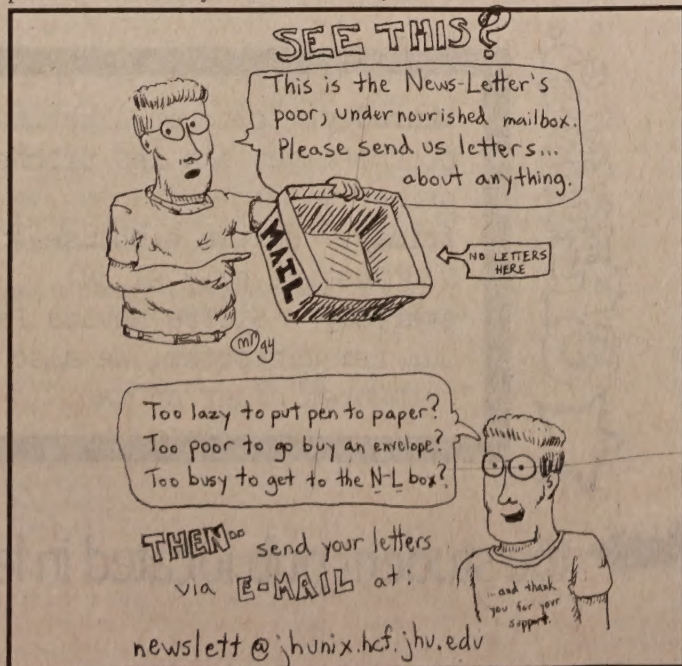 SEE THIS?
This is the News-Letter's
poor, undernourished mailbox.
Please send us letters...
about anything.
MAIL
NO LETTERS
HERE
94
Too lazy to put pen to paper?
Too poor to go buy an envelope?
Too busy to get to the N-L box?
THEN... send your letters
via E-MAIL at:
...and thank
you for your
support.
newslett@jhunix.hcf.jhu.edu